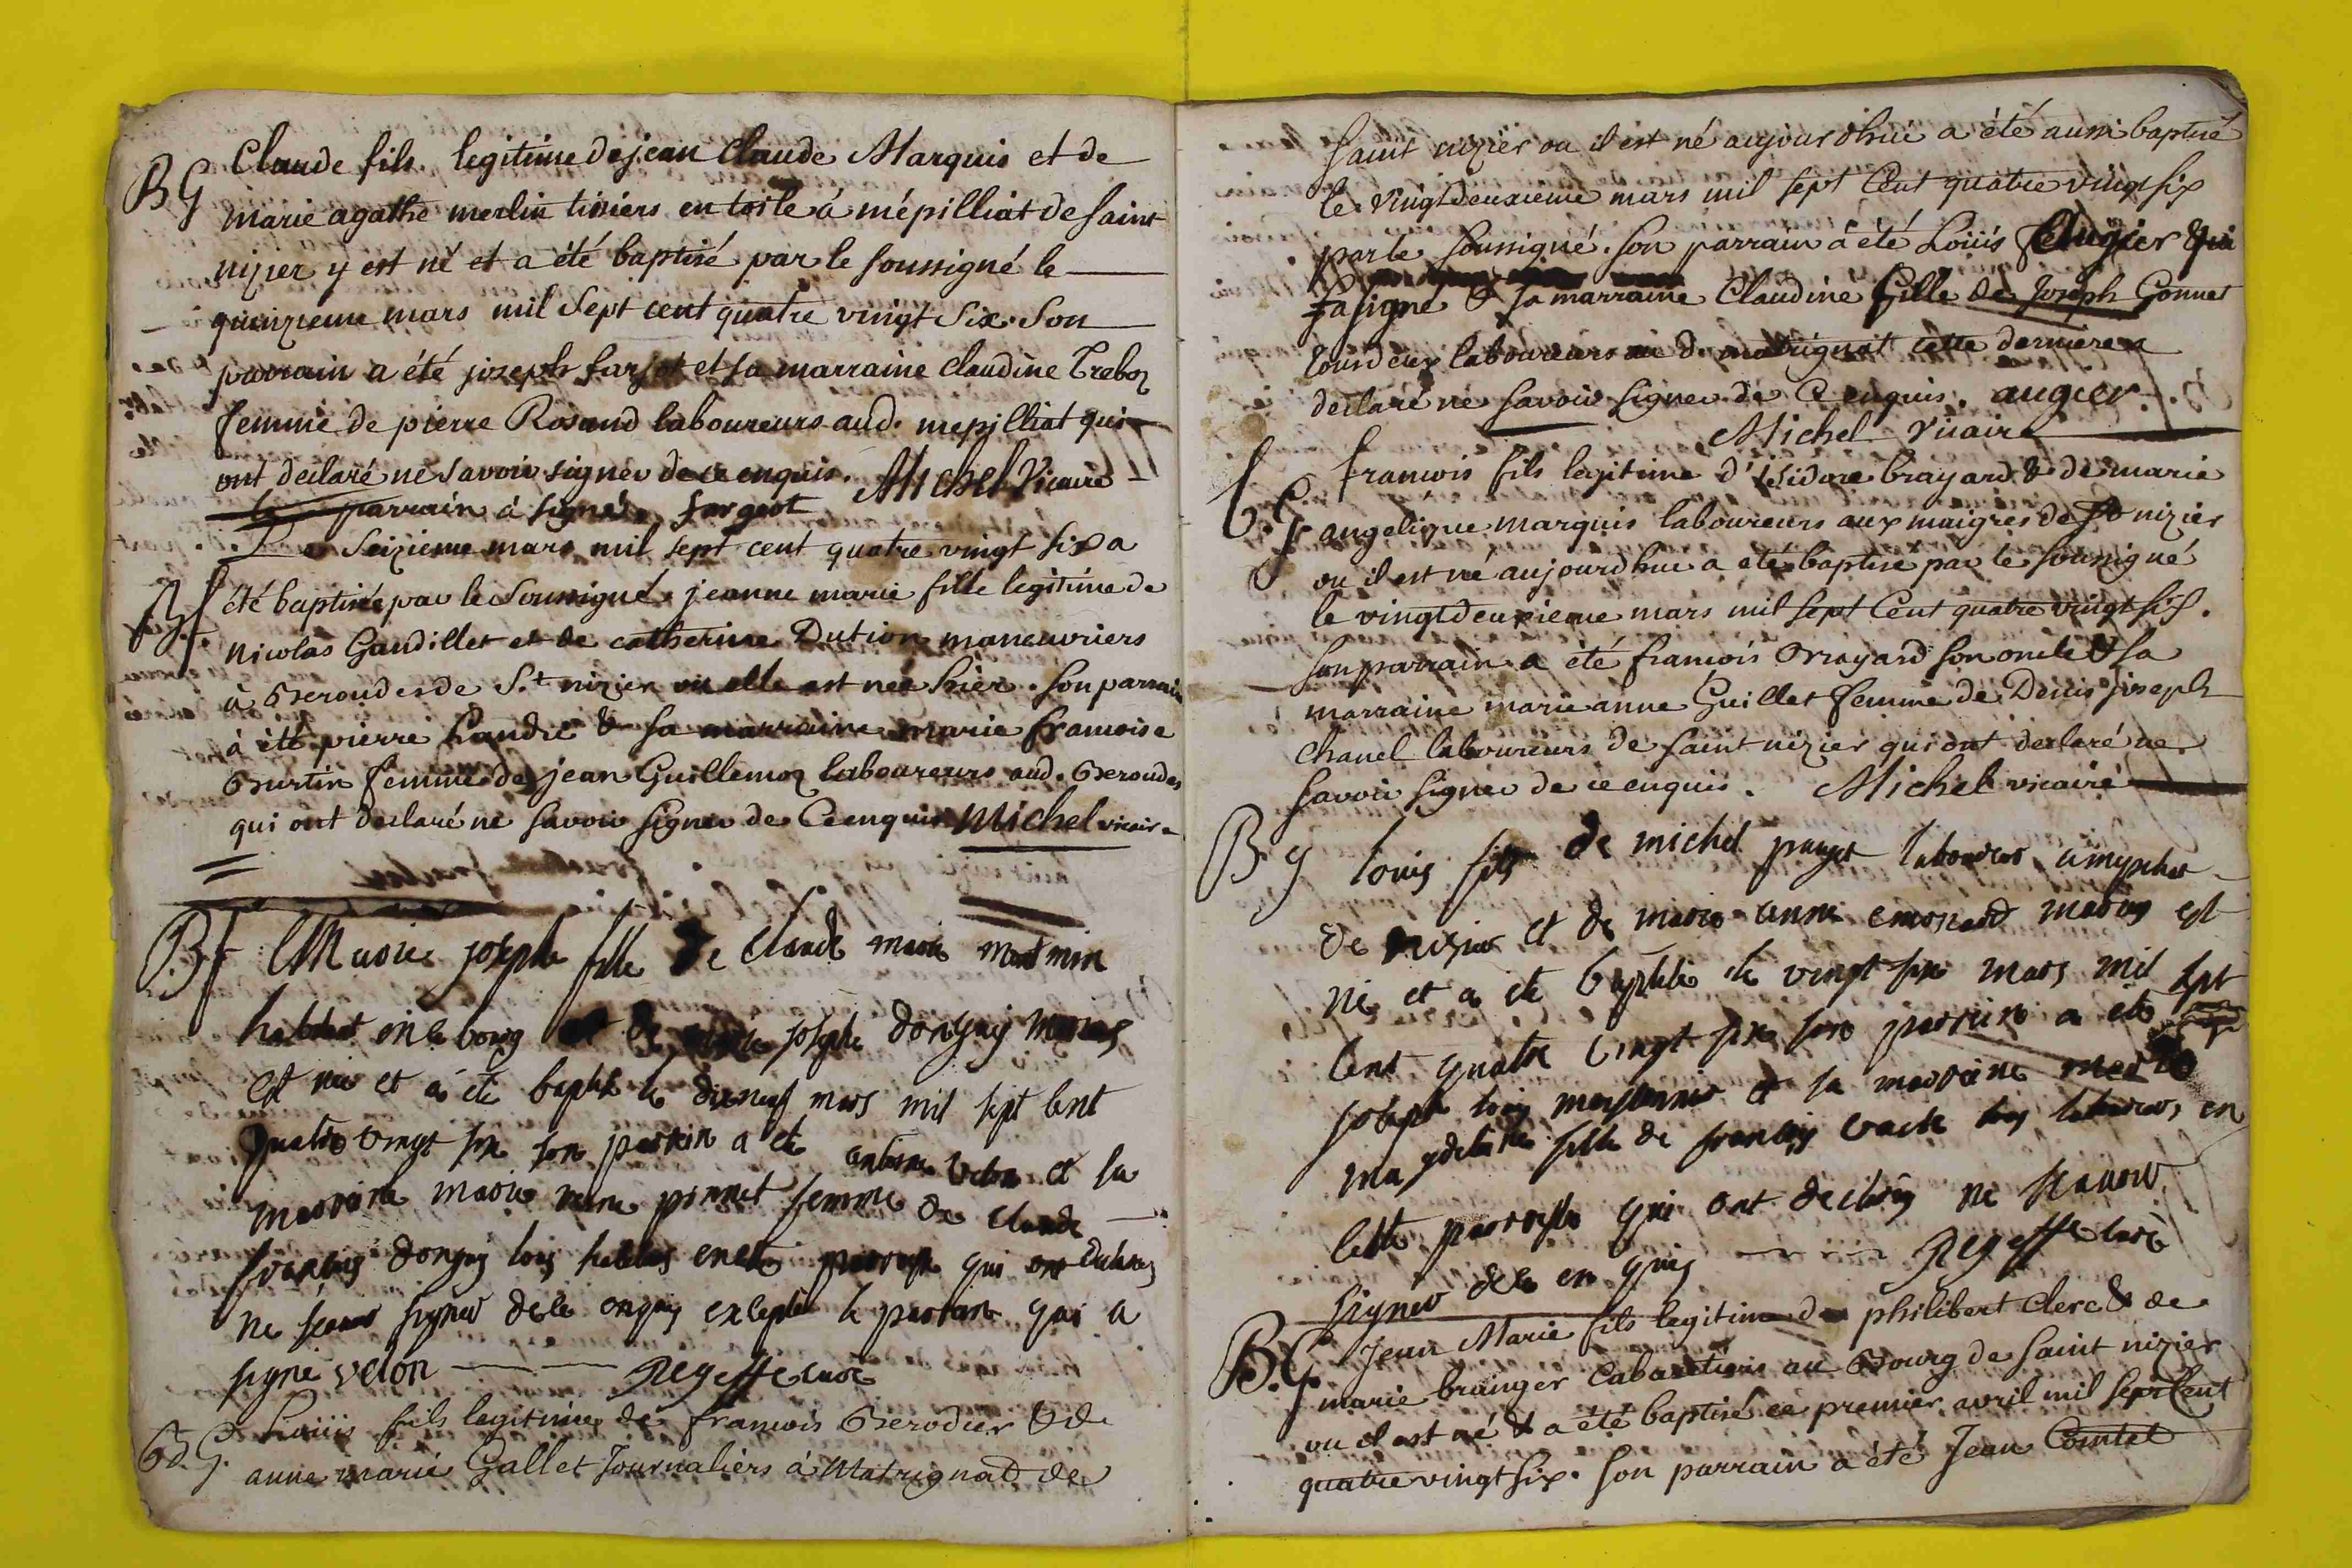 BG Claude fils legitime de jean Claude Marquis et de
marie agathe merlin tixiers en toile à mépilliat de saint
nizier y est né et a été baptisé par le soussigné le
quinzieme mars mil sept cent quatre vingt six. Son
parrain a été joseph farjot et sa marraine Claudine Treboz
femme de pierre Rosand laboureurs aud. mepilliat qui
ont declaré ne savoir signer de ce enquis. Michel Vicaire
le parrain à signé. fargeot
Le Seizieme mars mil sept cent quatre vingt six a
Bf été baptisée par le Soussigné jeanne marie fille legitime de
nicolas Gaudillet et de catherine Dution maneuvriers
à Beroudes de St nizier ou elle est née hier. son parrain
à été pierre Landré & sa marraine marie francoise
Burtin femme de jean Guillemoz laboureurs aud. Beroudes
qui ont declaré ne savoir signer de Ce enquis Michel vicaire
Bf Marie josephe fille de Claude marie
habitant en le bourg et de josephe donguy maries
est née et a été baptisé le dixneuf mars mil sept Cent
quatre vingt six son parrain a été antoine velon et sa
marraine marie pirnnet femme de Claude
francois donguy tous habitans en cette parroisse qui ont declares
ne scavoir signer de ce enquis excepté le parrain qui a
signé velon Regeffe curé
Bd. G. Louiis fils legitime de francois Berodier & de
anne marie Gallet Journaliers à Matrignat de
saint nizier ou il est né aujourdhui a été aussi baptisé
le vingtdeuxieme mars mil sept Cent quatre vingt six
par le soussigné. son parrain à été Louiis Augier qui
a signé & sa marraine Claudine fille de Joseph Gonnet
tous deux laboureurs aud. matrignat cette derniere a
declaré ne savoir signer de Ce enquis. augier.
Michel Vicaire
b. G. francois fils legitime d'isidore brayard & de marie
angelique marquis laboureurs aux maigres de St nizier
ou il est né aujourdhui a été baptisé par le soussigné
le vingtdeuxieme mars mil sept Cent quatre vingt six.
son parrain a été francois Brayard son oncle & sa
marraine marie anne Guillet femme de Denis joseph
Chanel laboureurs de saint nizier qui ont declaré ne
savoir signer de ce enquis. Michel vicaire
B g louis fils de michel panget laboureur
de nizier et de marie anne emorand maries est
né et a été baptisé le vingt six mars mil sept
Cent quatre vingt six son parrain a été
joseph louis et sa marraine
magdelaine fille de francois vacle tous laboureurs en
Cette parroisse qui ont declarés ne scavoir
signer de ce en quis Regeffe curé
B. G. Jean Marie fils legitime de philibert Clerc & de
marie bruinger Cabaretiers au Bourg de saint nizier
ou il est né & a été baptisé ce premier avril mil sept Cent
quatre vingt six. son parrain a été Jean Comtet